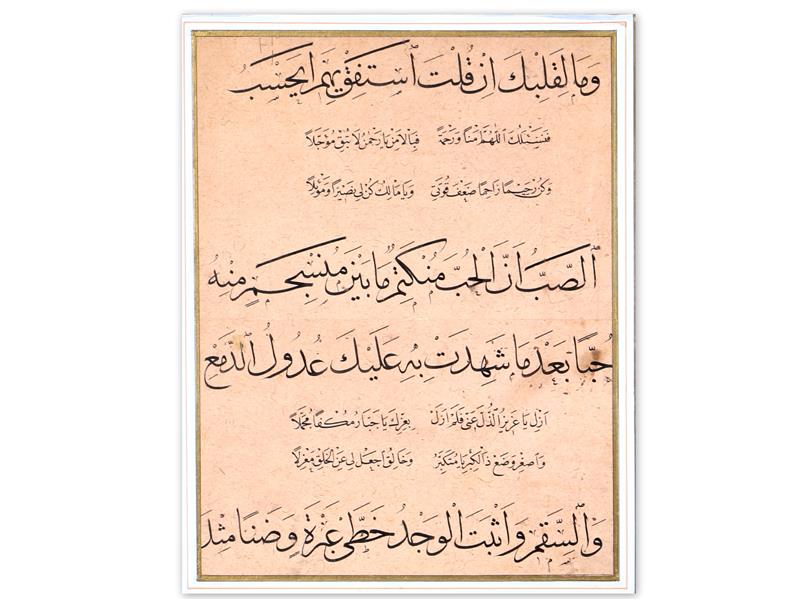 وَمَا لِقَلْبِكَ اِنْ قُلْتَ ٱسْتَفِقْ يَهِمِ اَيَحْسَبُ
فنسئلك اللهم منا ورحمة فبالامن يا رحمن لا تبق موجلا
وكن رحيما راحما ضعف قوتي ويا مالك كن لي نصيرا وموئلا
ٱلصَّبُّ اَنَّ الْحُبَّ مُنْكَتِمٌ مَا بَيْنَ مُنْسَجِمٍ مِنْهُ
حُبًّا بَعْدَ مَا شَهِدَتْ بِهِ عَلَيْكَ عُدُولُ الدَّمْعِ
ازل يا عزيز الذل عني فلم ازل بعزك يا جبار مكفا مجملا
واصغر وضع ذا الكبر يا متكبر وخالق اجعل لي عن الخلق معزلا
وَٱلسَّقَمِ وَاَثْبَتَ الْوَجْدُ خَطَّىْ عَبْرَةٍ وَضَنًا مِثْلَ